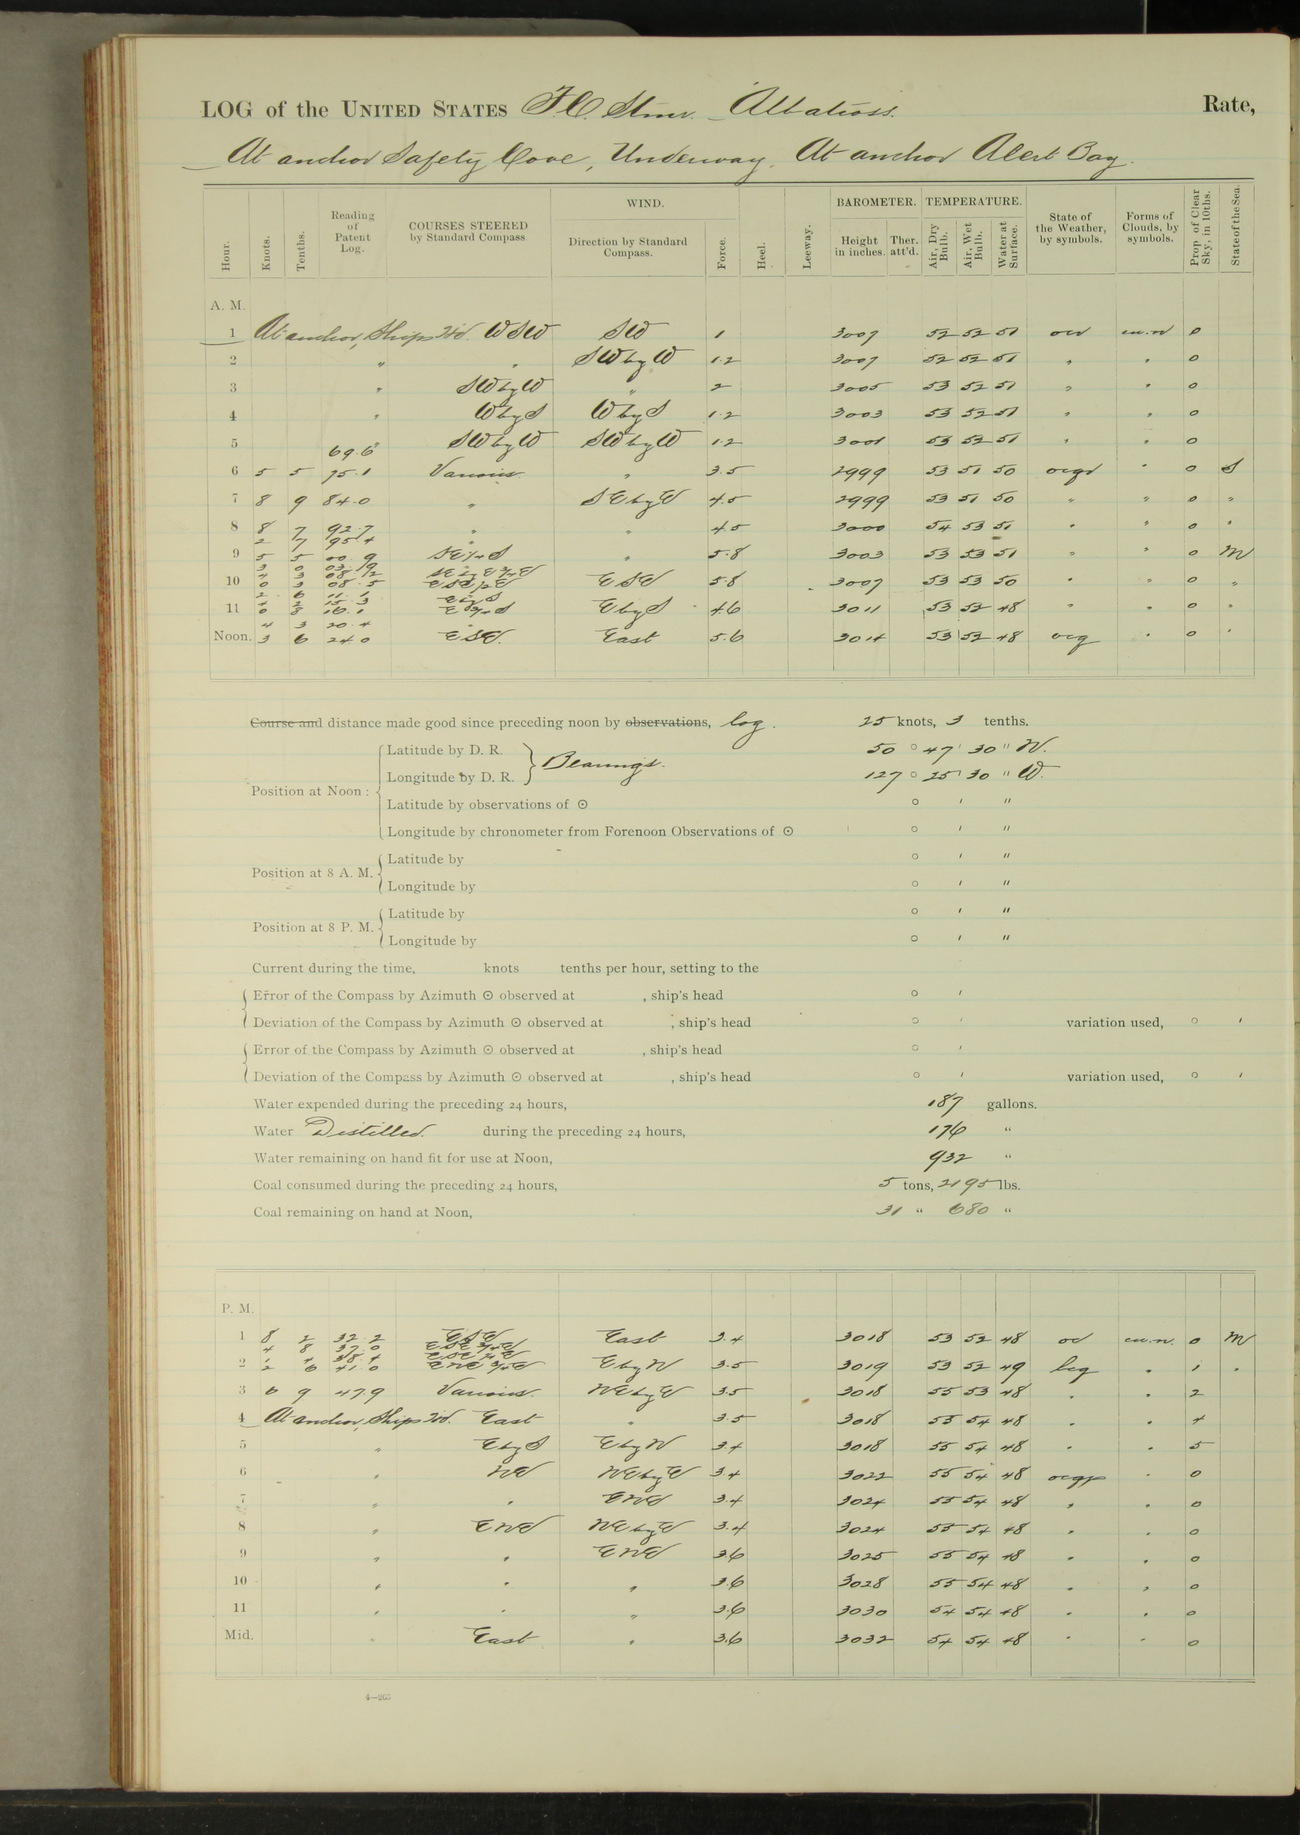 LOG of the UNITED STATES F.C. Stmr. Albatross. Rate,
At anchor Safety Cove, Underway, At anchor Alert Bay.
Hour. Knots. Tenths. Reading of Patent Log. COURSES STEERED by Standard Compass. WIND. Direction by Standard Compass. Force. Heel. Leeway. BAROMETER. Height in inches. Ther. att'd. TEMPERATURE. Air, Dry Bulb. Air, Wet Bulb. Water at Surface. State of the Weather, by symbols. Forms of Clouds, by symbols. Prop. of Clear Sky, in 10ths. State of the Sea.
A. M.
1 At anchor, Ships Hd. WSW SW 1 3007 52 52 51 ocd cu.n 0
2 " " SW by W 1.2 3007 52 52 51 " " 0
3 " SW by W " 2 3005 53 52 51 " " 0
4 " W by S W by S 1.2 3003 53 52 51 " " 0
5 69.6 " SW by W SW by W 1.2 3001 53 52 51 " " 0
6 5 5 75.1 Various " 3.5 2999 53 51 50 ocgd " 0 S
7 8 9 84.0 " SE by E 4.5 2999 53 51 50 " " 0 "
8 8 7 92.7 " " 4.5 3000 54 53 51 " " 0 "
2 7 95.4 "
9 5 5 00.9 SE ¼ S " 5.8 3003 53 53 51 " " 0 M
3 0 03.9
4 3 08.2 SE by E ¾ E
10 0 3 08.5 ESE ½ E ESE 5.8 3007 53 53 50 " " 0 "
2 6 11.1 E by S
4 2 15.3
11 0 8 16.1 E ¾ S E by S 4.6 3011 53 52 48 " " 0 "
4 3 20.4 "
Noon. 3 6 24.0 ESE. East 5.6 3014 53 52 48 ocg " 0 "
Course and distance made good since preceding noon by observations, log. 25 knots, 3 tenths.
Latitude by D. R. 50 ° 47 ' 30 " N.
Bearings.
Longitude by D. R. 127 ° 25 ' 30 " W.
Position at Noon :
Latitude by observations of ☉ ° ' "
Longitude by chronometer from Forenoon Observations of ☉ ° ' "
Latitude by ° ' "
Position at 8 A. M.
Longitude by ° ' "
Latitude by ° ' "
Position at 8 P. M.
Longitude by ° ' "
Current during the time, knots tenths per hour, setting to the
Error of the Compass by Azimuth ☉ observed at , ship's head ° '
Deviation of the Compass by Azimuth ☉ observed at , ship's head ° ' variation used, ° '
Error of the Compass by Azimuth ☉ observed at , ship's head ° '
Deviation of the Compass by Azimuth ☉ observed at , ship's head ° ' variation used, ° '
Water expended during the preceding 24 hours, 187 gallons.
Water Distilled. during the preceding 24 hours, 176 "
Water remaining on hand fit for use at Noon, 932 "
Coal consumed during the preceding 24 hours, 5 tons, 2195 lbs.
Coal remaining on hand at Noon, 31 " 680 "
P. M.
1 8 2 32.2 ESE East 3.4 3018 53 52 48 oc cu.n. 0 M
4 8 37.0 ESE ¾ E
1 4 38.4 ESE ¼ E
2 2 6 41.0 ENE ¾ E E by N 3.5 3019 53 52 49 bcg " 1 "
3 6 9 47.9 Various. NE by E 3.5 3018 55 53 48 " " 2
4 At anchor, Ships Hd. East " 3.5 3018 55 54 48 " " 4
5 " E by S E by N 3.4 3018 55 54 48 " " 5
6 " NE NE by E 3.4 3022 55 54 48 ocgp " 0
7 " " ENE 3.4 3024 55 54 48 " " 0
8 " ENE NE by E 3.4 3024 55 54 48 " " 0
9 " " ENE 3.6 3025 55 54 48 " " 0
10 " " " 3.6 3028 55 54 48 " " 0
11 " " " 3.6 3030 54 54 48 " " 0
Mid. " East " 3.6 3032 54 54 48 " " 0
4—265